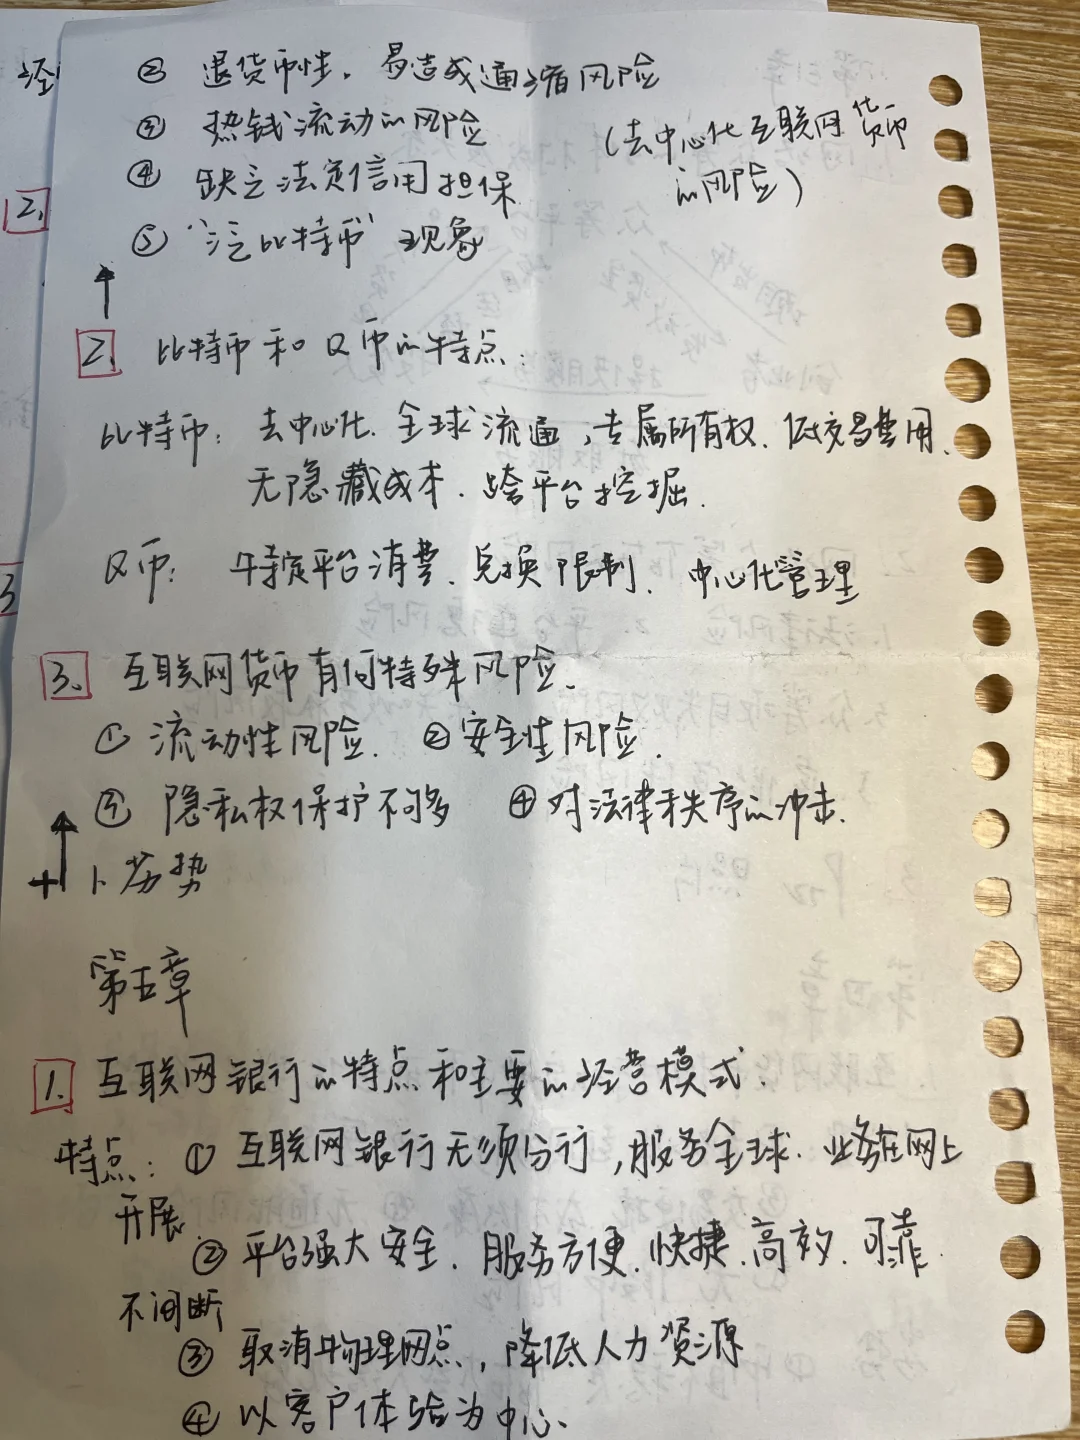 ② 退货币性，易造成通缩风险
③ 热钱流动的风险
(去中心化互联网货币
的风险)
④ 缺乏法定信用担保
⑤ "泛比特币" 现象
2. 比特币和Q币的特点：
比特币：去中心化、全球流通，专属所有权、低交易费用、
无隐藏成本、跨平台挖掘、
Q币：特定平台消费、兑换限制、中心化管理
3. 互联网货币有何特殊风险、
① 流动性风险、 ② 安全性风险、
③ 隐私权保护不够 ④ 对法律秩序的冲击、
+ 1、劣势
第五章
1. 互联网银行的特点和主要的经营模式、
特点：① 互联网银行无须分行，服务全球、业务在网上
开展
② 平台强大安全、服务方便、快捷、高效、可靠
不间断
③ 取消物理网点，降低人力资源
④ 以客户体验为中心、
经
2.
3